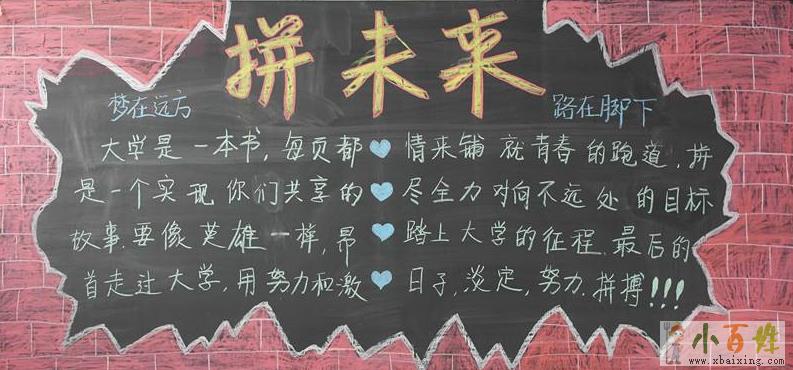 拼未来
梦在远方
路在脚下
大学是一本书，每页都
是一个实现你们共享的
故事.要像英雄一样，昂
首走过大学，用努力和激
情来铺就青春的跑道.拼
尽全力对向不远处的目标
踏上大学的征程.最后的
日子，淡定，努力.拼搏!!!
小百姓
www.xbaixing.com